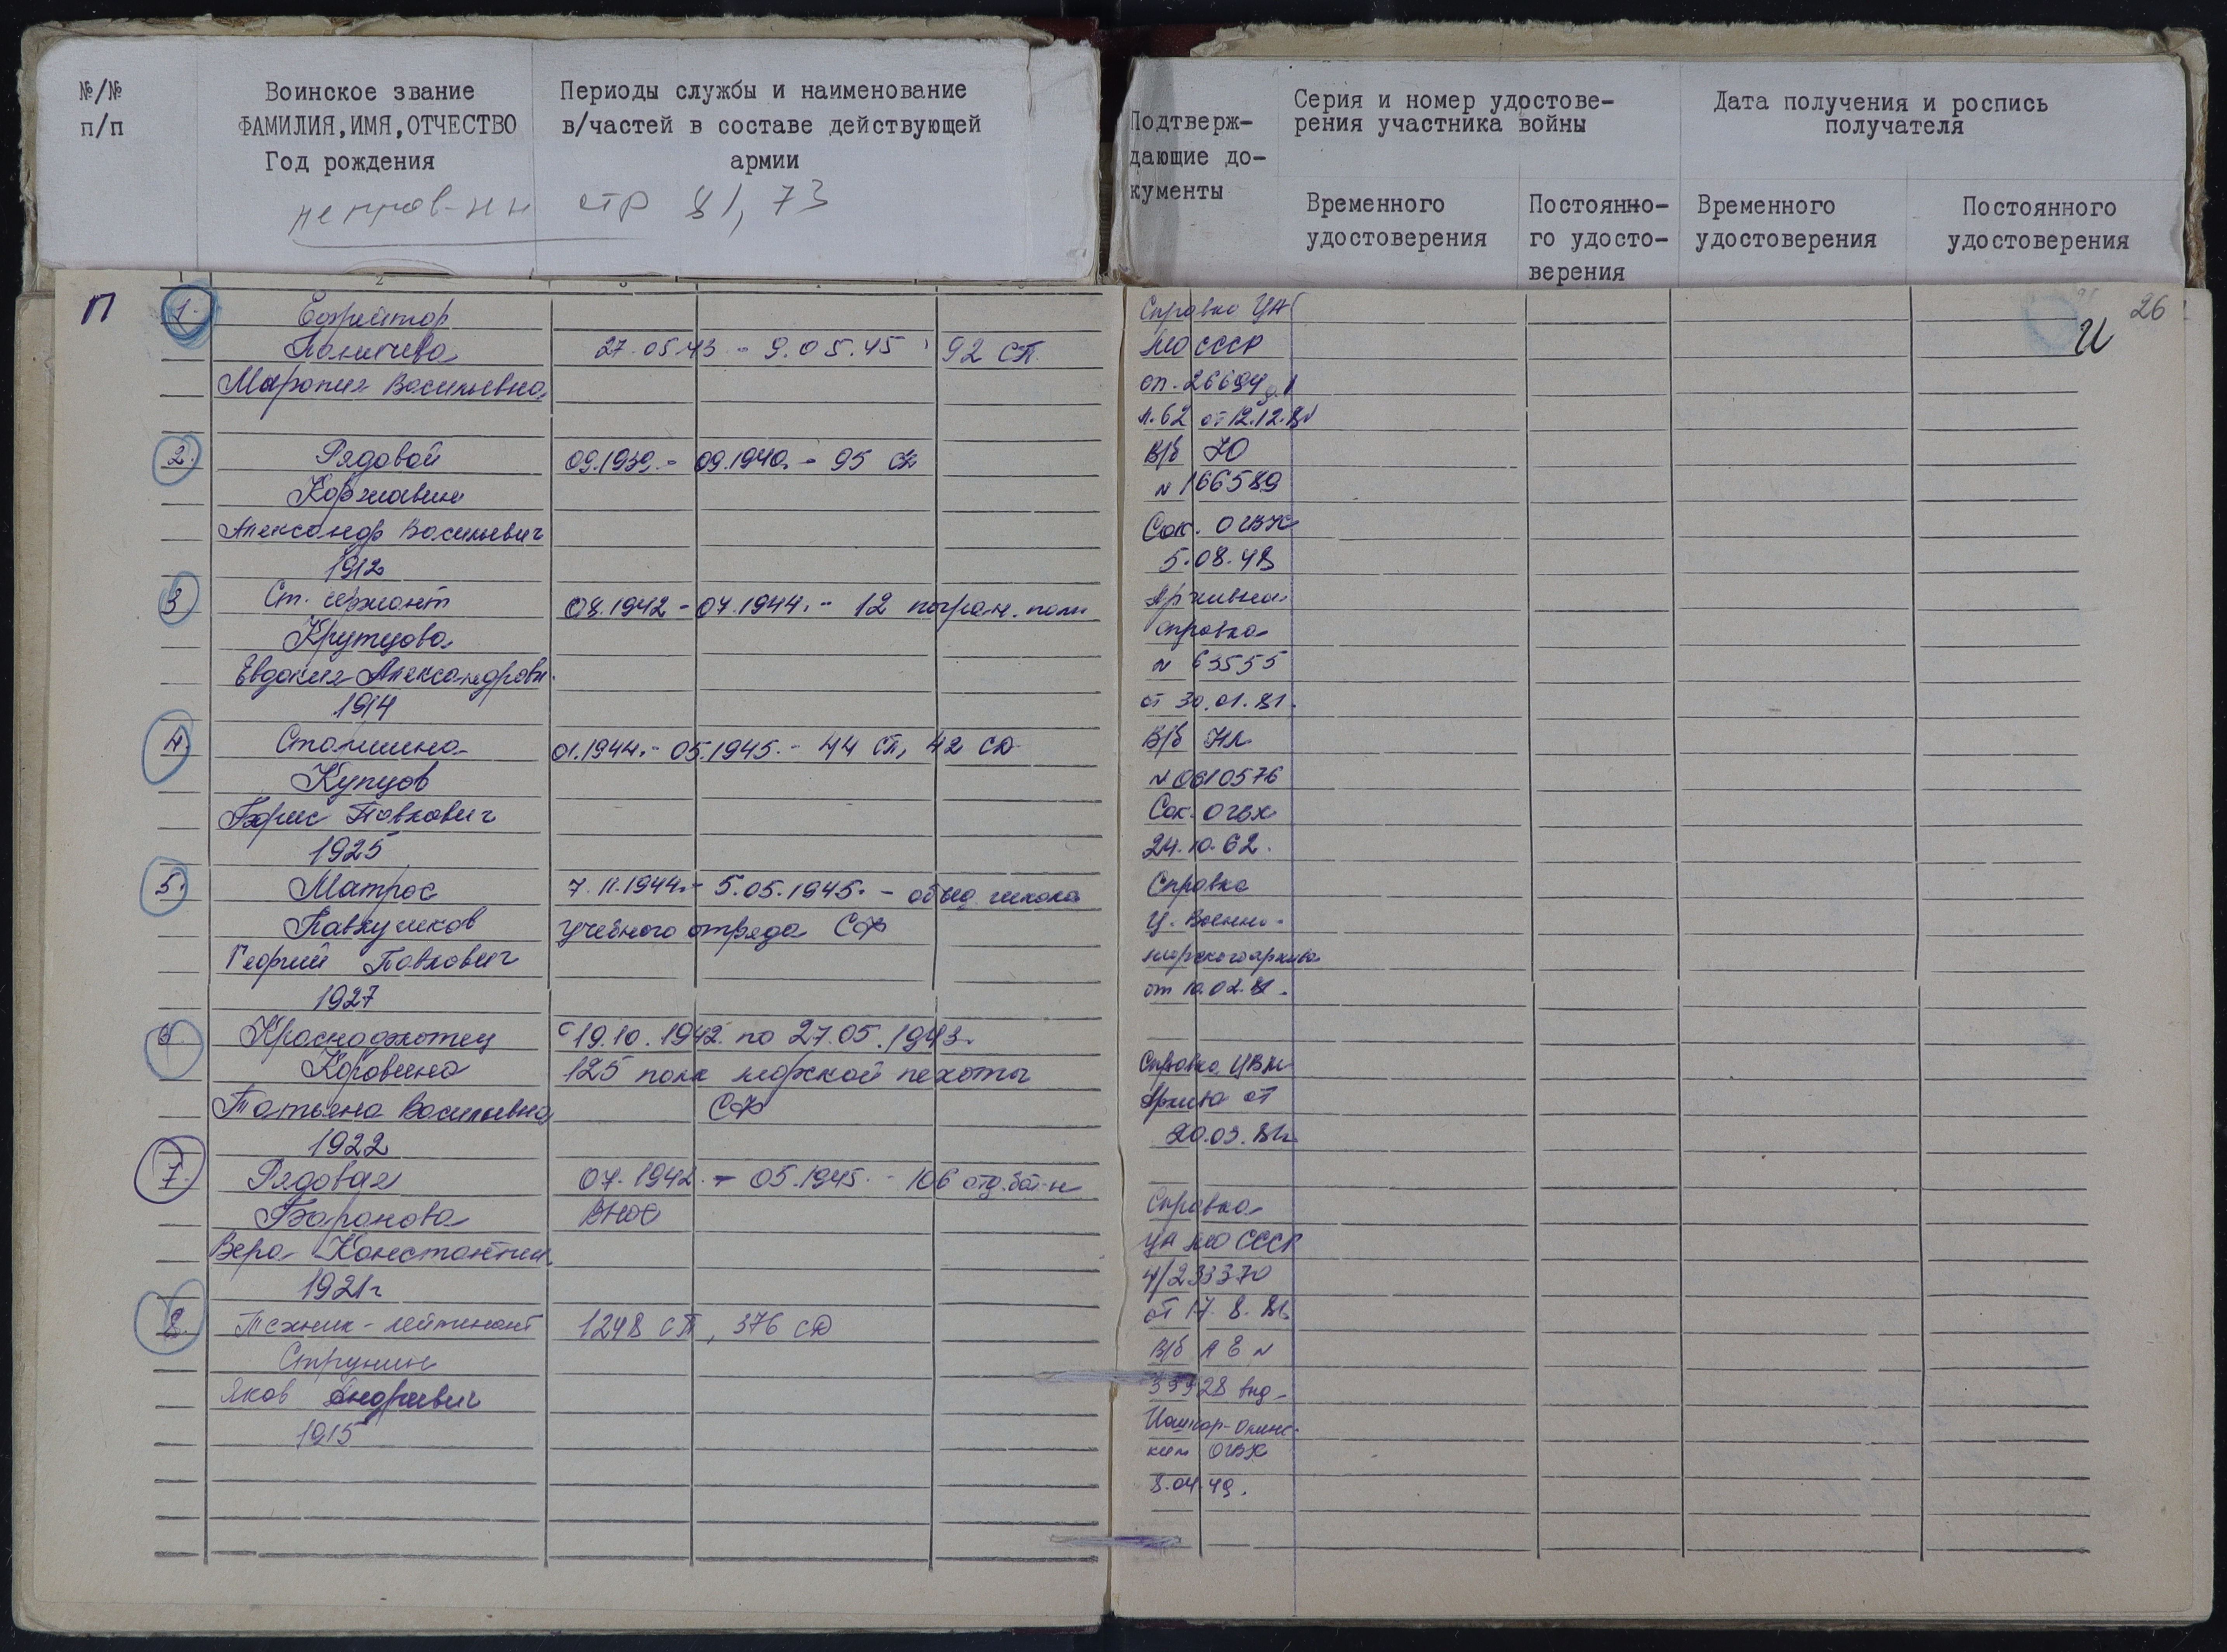 №/№
п/п
Воинское звание
ФАМИЛИЯ,ИМЯ,ОТЧЕСТВО
Год рождения
Периоды службы и наименование
в/частей в составе действующей
армии
стр 81, 73
Подтверж-
дающие до-
кументы
Серия и номер удостове-
рения участника войны
Временного
удостоверения
Постоянно-
го удосто-
верения
Дата получения и роспись
получателя
Временного
удостоверения
Постоянного
удостоверения
26
П
И
1.
Ефрейтор
27.05.43 - 9.05.45 92 СП
Васильевна
Справка ЦА
МО СССР
оп. 26694
л. 62 от 12.12.81
2.
Рядовой
09.1939. - 09.1940. - 95
Коржавин
Александр Васильевич
1912
В/б
№ 166589
Сок. ОГВК
5.08.48
3
Ст. сержант
08.1942 - 07.1944. - 12 погран. полк
Крутцова
Евдокия Александровн.
1914
Архивная
справка
№ 63555
от 30.01.81.
4.
Старшина
01.1944. - 05.1945. - 44 СП, 42 СД
Купцов
Борис Павлович
1925
В/б НЛ
№ 0610576
Сок. ОГВК
24.10.62.
5.
Матрос
7.11.1944. - 5.05.1945. - объед. школа
учебного отряда СФ
Георгий Павлович
1927
Справка
Ц. Военно-
морского архива
от 10.02.81.
6.
Краснофлотец
с 19.10.1942. по 27.05.1943.
Коровина
125 полк морской пехоты
Татьяна Васильевна
СФ
1922
Справка ЦВМ
Архива от
20.03.81г
7.
Рядовая
07.1942. - 05.1945. - 106 отд. бат-н
Баранова
ВНОС
Вера Константин.
1921г
Справка
ЦА МО СССР
4/233370
от 17.8.81г
8.
Техник-лейтенант
1248 СП, 376 СД
Струнин
Яков Андреевич
1915
В/б АЕ №
Йошкар-Олинс-
ким ОГВК
8.04.49.